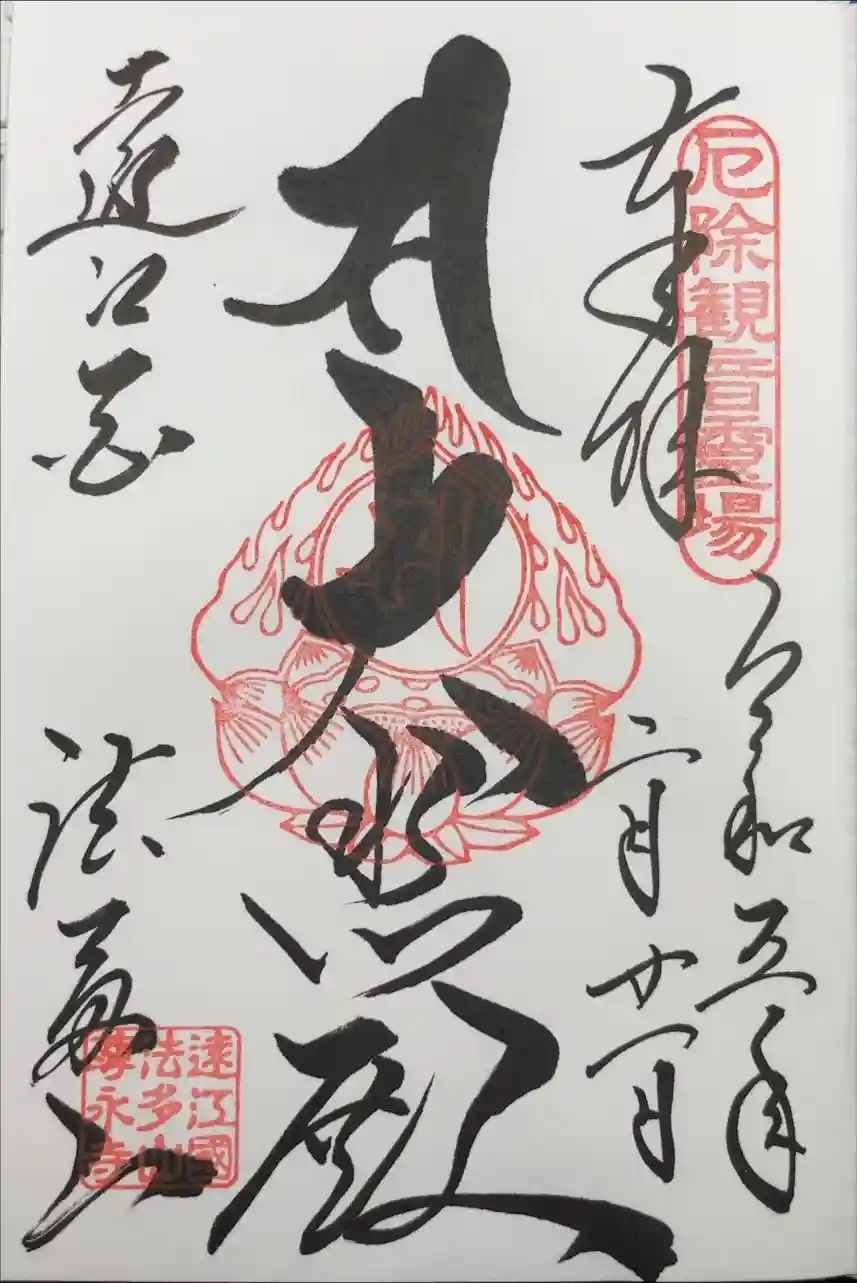 奉拝
厄除観音霊場
令和五年
二月廿一日
大悲殿
遠江国
法多山
遠江國
法多山
尊永寺